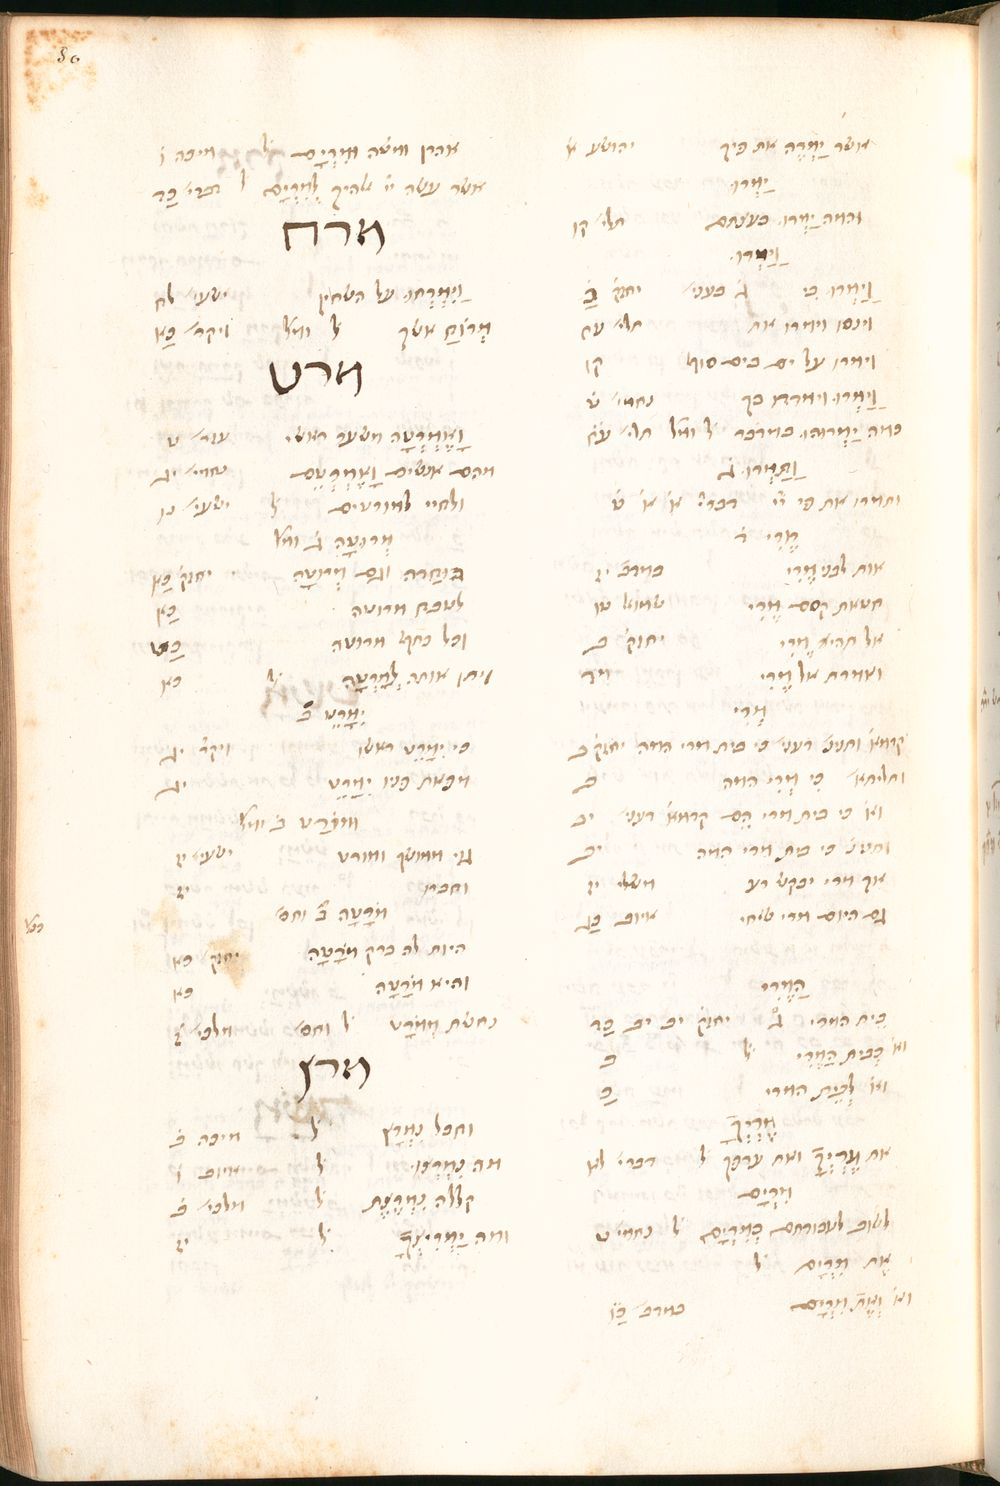 80
אשר יַמְרֶה את פיך יהושע א
יַמְרוּ
והמה יַמְרוּ בעצתם תלי׳ קו
וַיַמְרוּ
וַיַמְרוּ בִי ב׳ בעני׳ יחזק׳ כ
וינסו וימרו את תלי׳ עח
וימרו על ים בים סוף קו
וַיַמְרוּ וימרדו בך נחמי׳ ט
כמה יַמְרוּהוּ במדבר ל׳ ומל׳ תלי׳ עח
וַתַמְרוּ ב
ותמרו את פי יי׳ דברי׳ א׳ א׳ ט
מֶרִי ד
אות לבני מֶרִי במדב׳ יז
חטאת קסם מֶרִי שמואל טו
אל תהי׳ מֶרִי יחזק׳ ב
ואמרת אל מֶרִי מד
מְרִי
ותליתא׳ כִּי מְרִי המה ב
וא׳ כי בית מרי הֵם קדמא׳ דעני׳ יב
כי בית מרי המה יב
אך מרי יבקש רע משלי יז
גם היום מרי שׂיחי איוב כג
הַמֶרִי
בית המרי ג׳ יחזק׳ יב יב כד
וא׳ כְּבית הַמֶרִי ל׳ ב
וא׳ לְבֵית המרי
מֶרְיְךָ
את מֶרְיְךָ ואת ערפך ל׳ דברי׳ לא
מִרְיָם
לשוב לעבדתם בְּמִרְיָם ל׳ נחמי׳ ט
את מִרְיָם ל׳
וא׳ וְאֶת מִרְיָם במדב׳ כו
אהרן ומשה וּמִרְיָם ל׳ מיכה ו
אשר עשה יי׳ אלהיך לְמִרְיָם ל׳ דברי׳ כד
מרח
וְיִמְרְחוּ על השחין ישעי׳ לח
מְרוֹחַ אשך ל׳ ומל׳ ויקר׳ כא
מרט
וָאֶמְרְטָה משער ראשי עזר׳ ט
מהם אנשים וָאֶמְרְטֵם נחמי׳ יג
ולחיי למורטים ל׳ ישעי׳ נו
מְרוּטָה ג׳ ומל׳
וגם מְרוּטָה יחזק׳ כא
לטבח מרוטה כא
וכל כתף מרוטה כט
ויתן אותה לְמָרְטָה ל׳ כא
יִמָּרֵט ב׳
כי יִמָּרֵט ראשו ויקר׳ יג
מפאת פניו יִמָּרֵט יג
וּמוֹרָט ב׳ ומל׳
גוי ממושך ומורט ישעי׳ יח
וחברו
מֹרָטָה ב׳ וחס׳
היות לה ברק מֹרָטָּה יחזק׳ כא
והיא מֹרָטָה כא
נחשת מְמֹרָט ל׳ וחס׳ מלכי׳ ז
מרץ
וחבל נִמְרָץ ל׳ מיכה ב
מה נִּמְרְצוּ ל׳ איוב ו
קללה נִמְרֶצֶת ל׳ מלכי׳ ב
ומה יַמְרִיצְךָ ל׳ יו